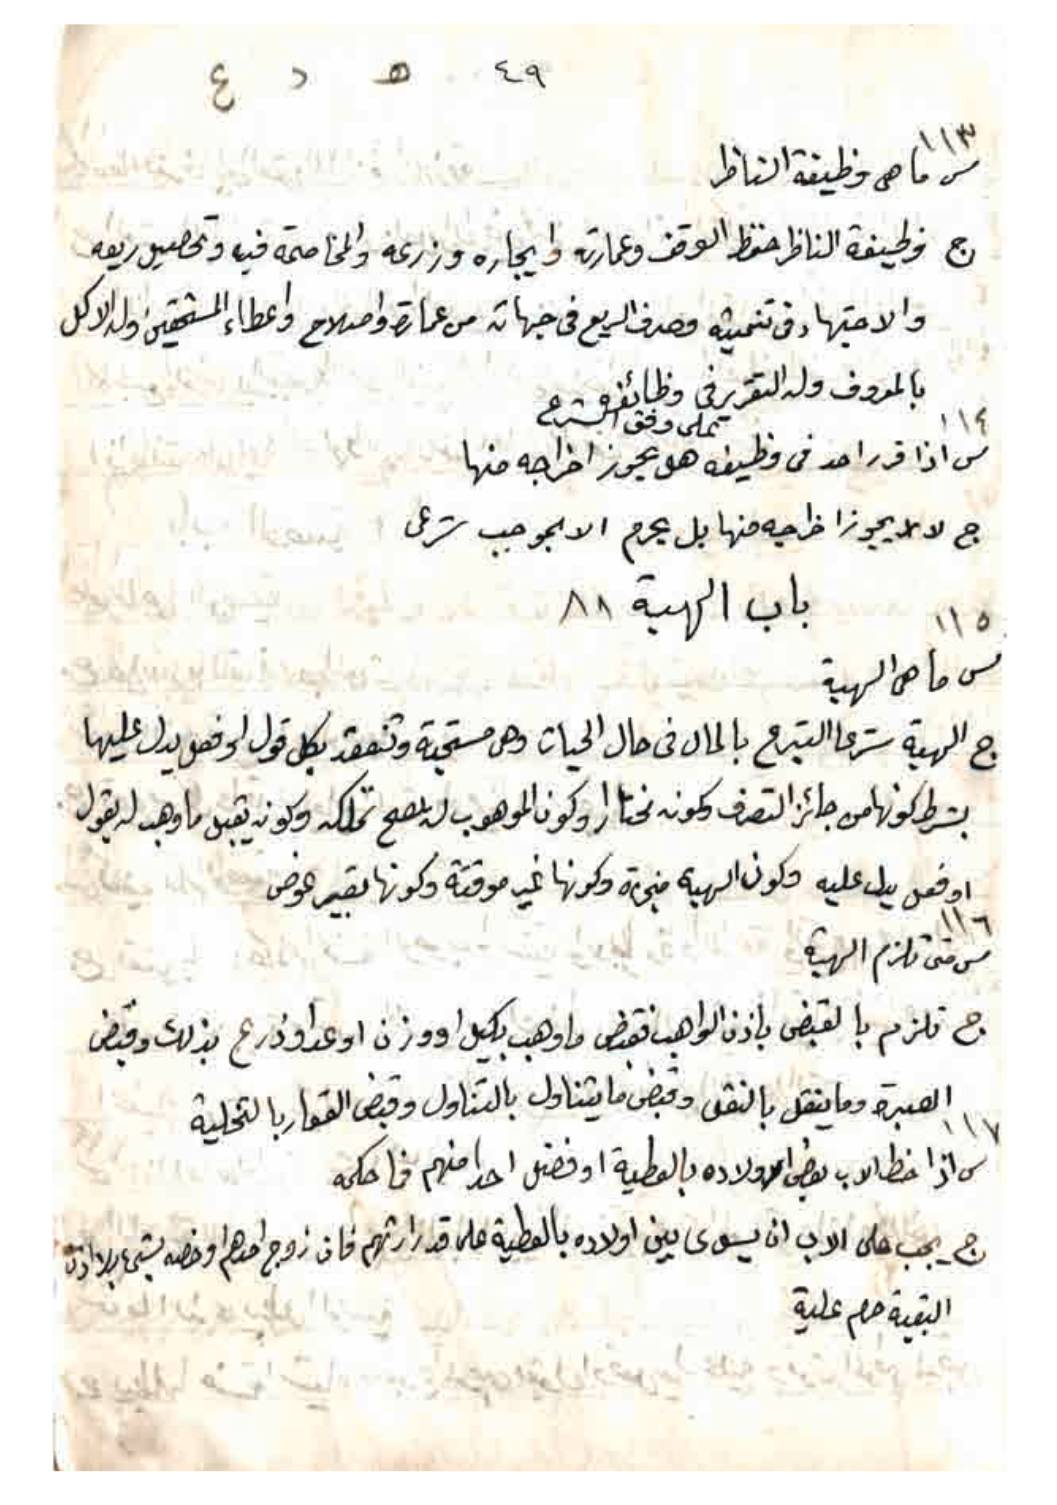 ٤٩ هـ د ع
١١٣
س ما هى وظيفة الناظر
ج وظيفة الناظر حفظ الوقف وعمارته وايجاره وزرعه والمخاصمة فيه وتحصيل ريعه
والاجتهاد فى تنميته وصرف الريع فى جهاته من عمارة واصلاح واعطاء المستحقين وله الاكل
بالمعروف وله التقرير فى وظائفه
على وفق الشرع
١١٤
س اذا قرر احد فى وظيفه هل يجوز اخراجه منها
ج لا يجوز اخراجه منها بل يحرم الا بموجب شرعى
باب الهبة ٨٨
١١٥
س ما هى الهبة
ج الهبة شرعا التبرع بالمال فى حال الحيات وهى مستحبة وتنعقد بكل قول او فعل يدل عليها
بشرط كونها من جائز التصرف وكونه مختارا وكون الموهوب له يصح تملكه وكونه يقبل ما وهب له بقول
او فعل يدل عليه وكون الهبة منجزة وكونها غير موقتة وكونها بغير عوض
١١٦
س متى تلزم الهبة
ج تلزم بالقبض باذن الواهب فقبض ما وهب بكيل او وزن او عد او ذرع بذلك وقبض
الصبرة وما ينقل بالنقل وقبض ما يتناول بالتناول وقبض العقار بالتخلية
١١٧
س اذا خط الاب بعض اولاده بالعطية او فضل احدا منهم فما حكمه
ج يجب على الاب ان يسوى بين اولاده بالعطية على قدر ارثهم فان زوج احدهم او خصه بشئ بلا اذن
البقية حرم علية